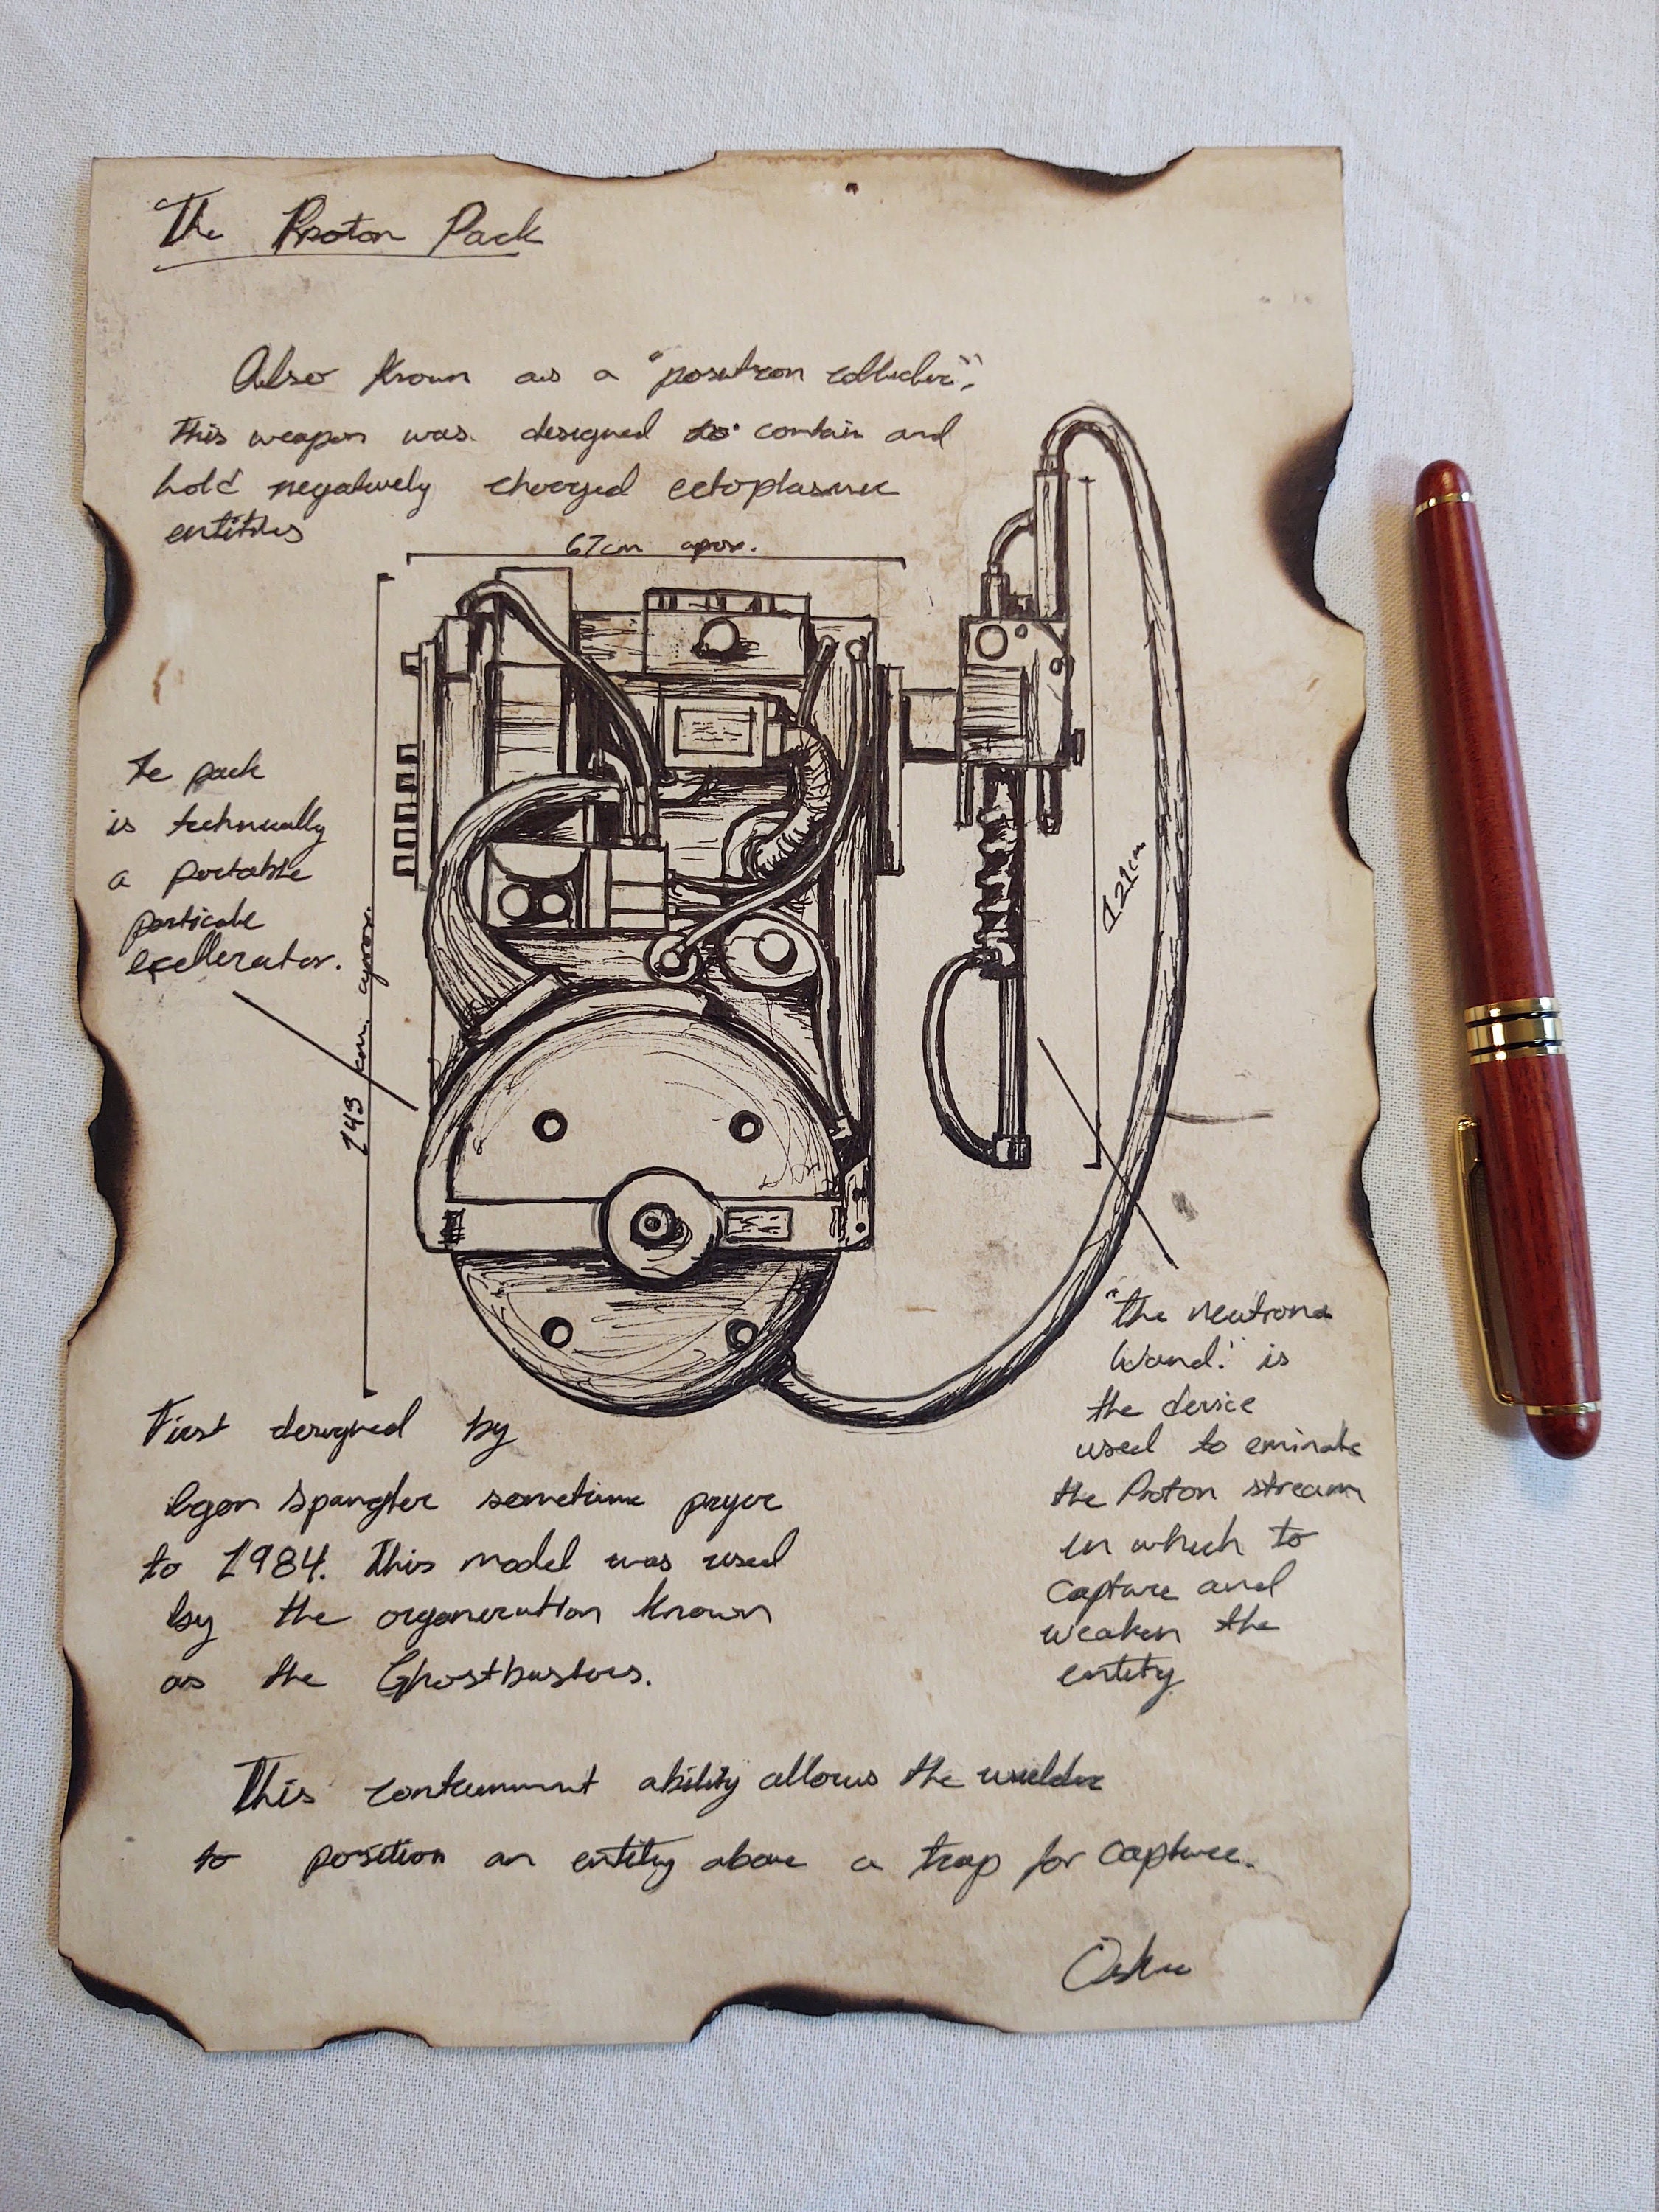 The Proton Pack
Also known as a "positron collider",
this weapon was designed to contain and
hold negatively charged ectoplasmic
entities
67cm aprox.
the pack
is technically
a portable
particale
excellerator.
143 cm. aprox.
121cm
"the neutrona
Wand." is
the device
used to eminate
the Proton stream
in which to
capture and
weaken the
entity
First designed by
Egon Spangler sometime pryor
to 1984. This model was used
by the organeration known
as the Ghostbusters.
This containment ability allows the wielder
to position an entity above a trap for capture.